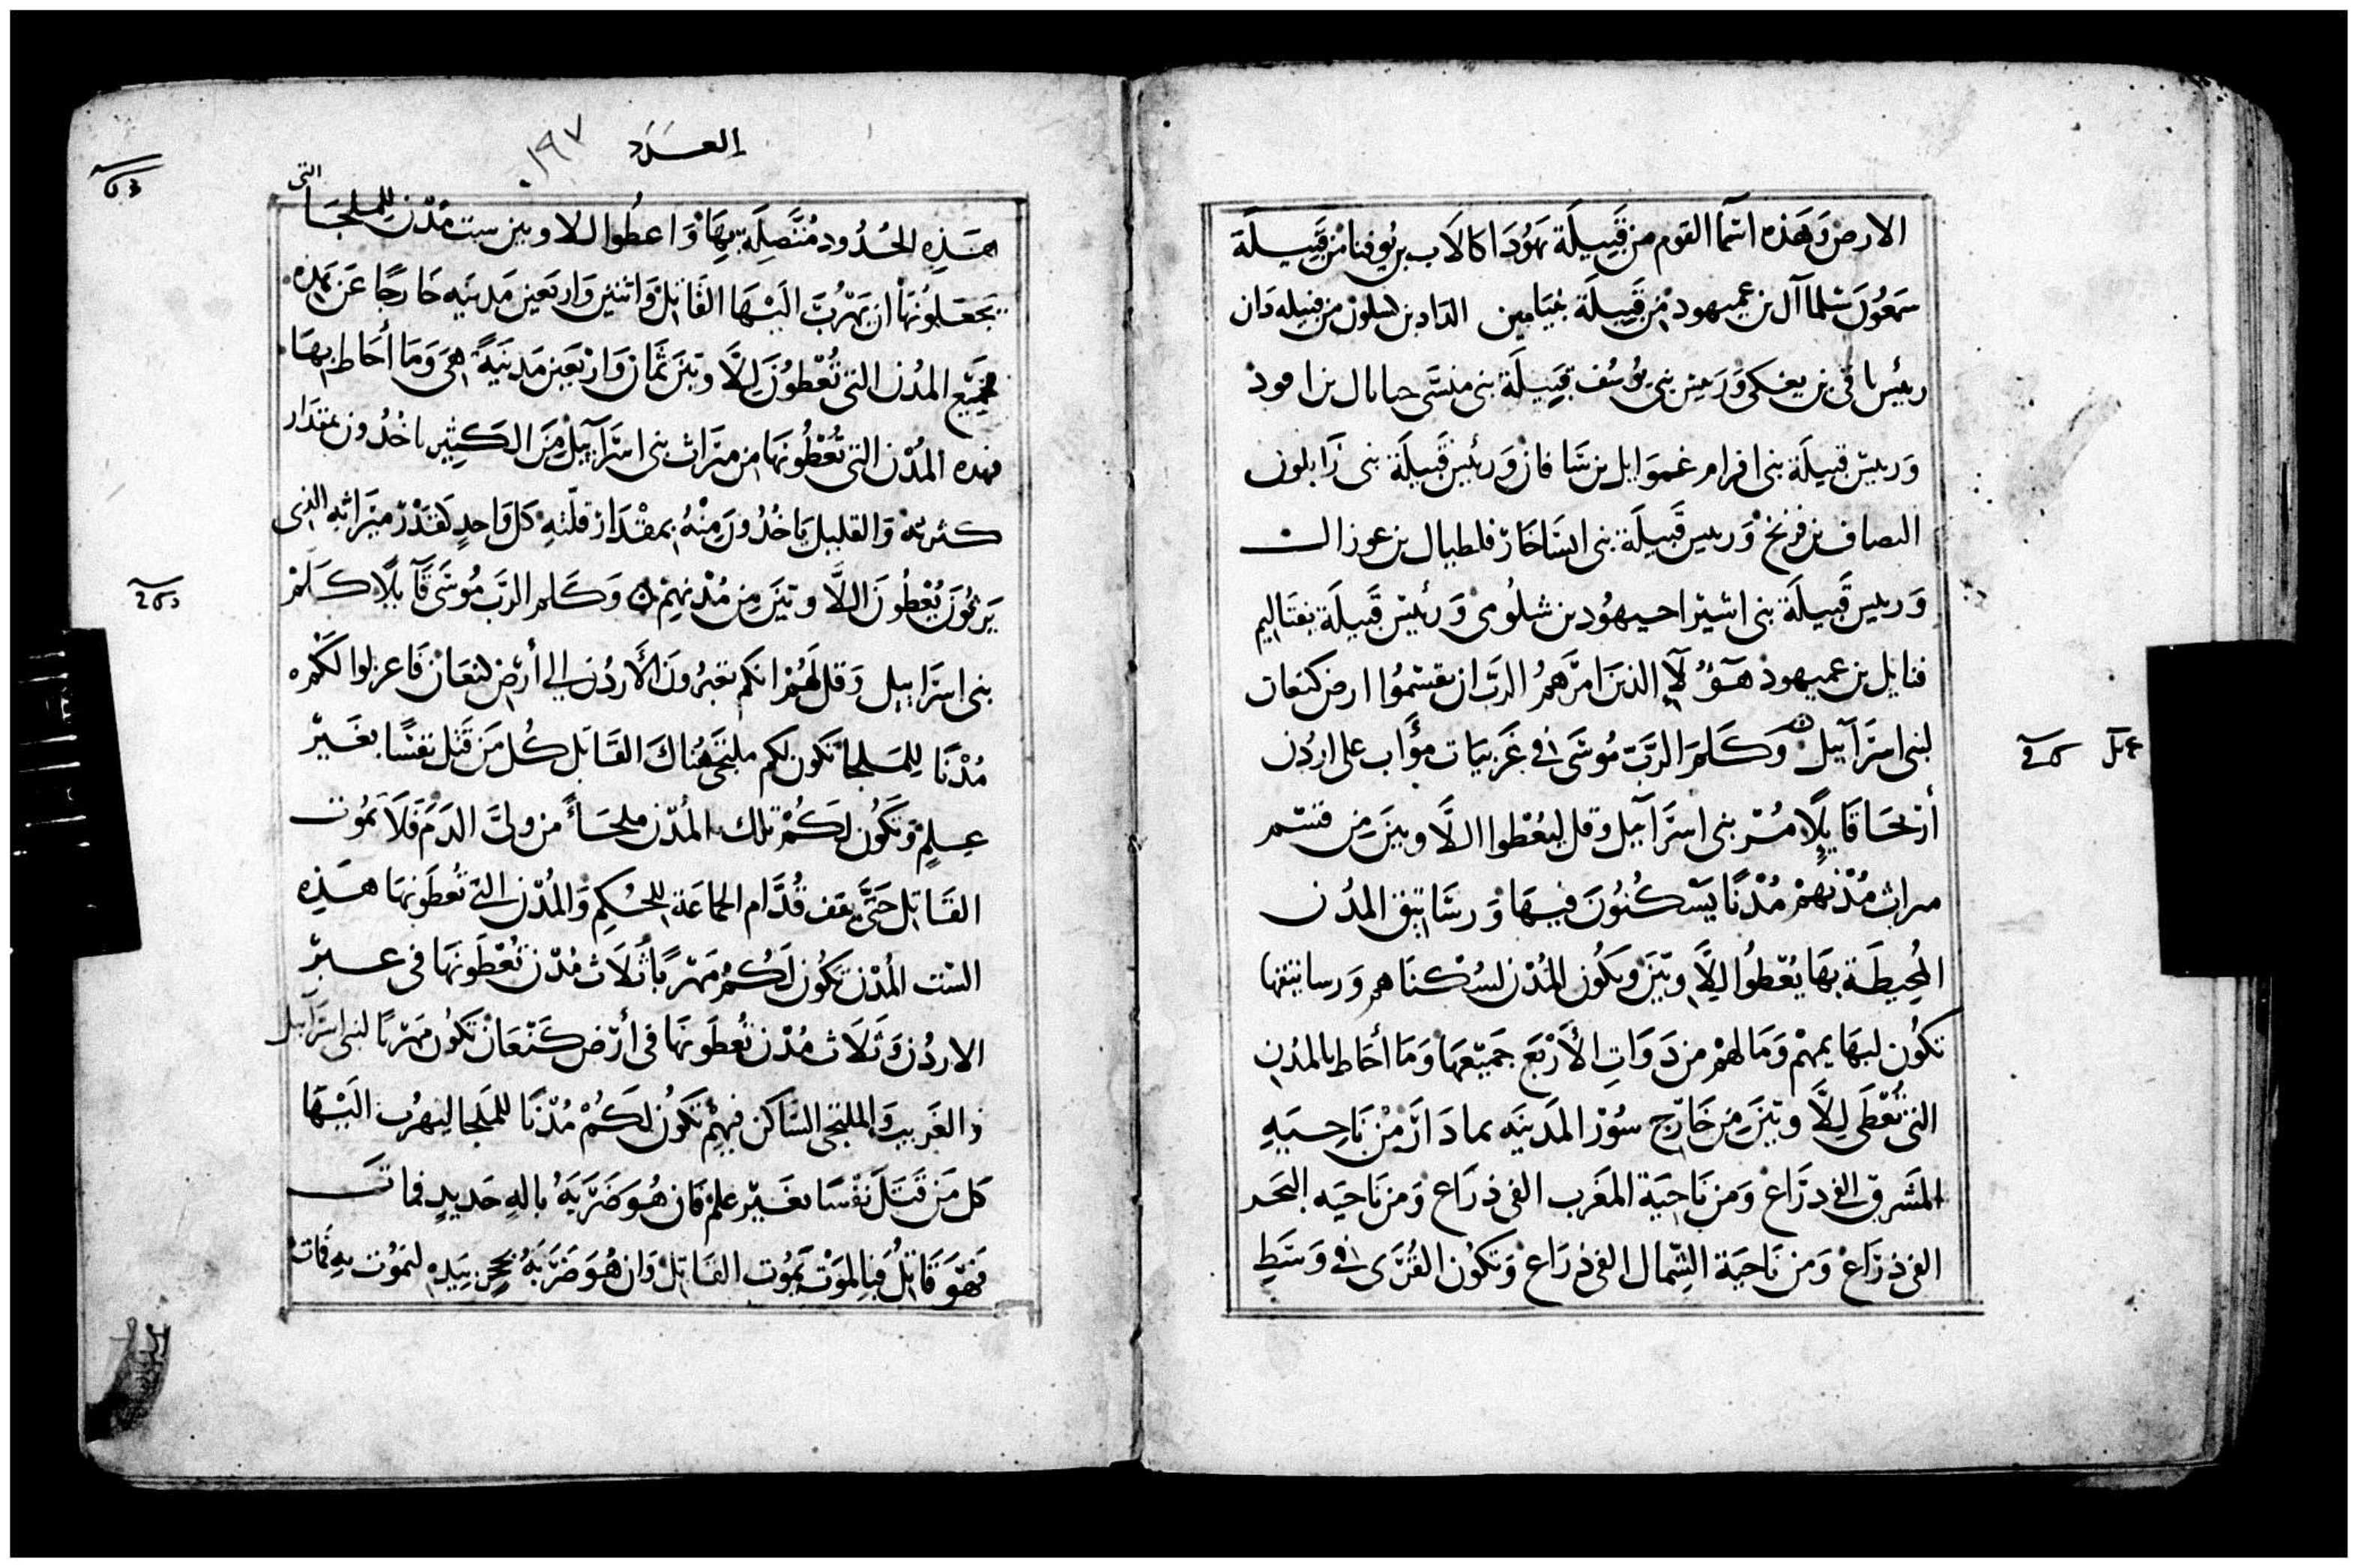 الارض وَهَذه اسَمآ القوم من قَبِيلَة يَهُودَا كالَاب بن يُوفنا من قَبِيلَة
سَمعُون شلماآل بن عميهود من قَبِيلَة بنيَامين الداد بن لسلون من قبيله دَان
رئيس باقى بن يعكى وَرَييس بنى يُوسُف قبِيلَة بنى منسَّى حيايال بن افود
وَرييس قبيلَة بنى افرام غموَايل بن سَافان وَرئيس قَبيلَة بنى زَابلون
الصاف بن فرنخ وَرييس قَبيلَة بنى ايسَاخَار فلطيال بن عوزال
وَرييس قَبيلَة بنى اشير احيهوُد بن شلُومى وَرئيس قَبيلَة نفتَاليم
فنايل بن عميهود هَؤُلآءِ الذينَ امرَهمُ الربّ ان يقسْمُوا ارض كنعان
لبنى اسرَآييل وَكَلمَ الربّ مُوسَى فى غَربيَات مؤَاب على اردُن
أريحَا قَايلًا مُر بنى اسرَآييل وقل ليعُطوا اللَّاويينَ من قسَم
ميراث مُدْنهمْ مُدْنًا يَسْكُنُونَ فيهَا وَرسَاتيق المدُن
المُحِيطَة بهَا يُعْطوُا لِلَّاويّينَ وَيكُون المُدْن لسُكنَاهم وَرساتيقها
تكوُن لبهَايمهْم وَمَالهْم من دَوَاتِ الأَرْبَع جَميْعهَا وَمَا أحَاط بالمدُن
التى تُعْطَى لِلَّاويّينَ مِن خَارِج سُوْر المَدينَه مما دَارَ مْن نَاحِيَه
المَشَرق الفى درَاع وَمن نَاحيَة المغَرب الفى ذرَاع وَمن نَاحيَه البَحَر
الفى ذرَاع وَمن نَاحيَة الشِّمال الفى ذرَاع وَتكوُن القُرَى فى وَسَطِ
عدد
العَدَد ١٩٧
هَذِهِ الحُدُود مُتَّصِلَة بِهَا وَاعطُوا للاويين ست مُدْن لِلملجَا التى
تجعَلوُنهَا ان يَهْرُبَ الَيْهَا القَاتِل وَاتنين وَاربَعين مَدينَه خَارجًا عَن هَذه
جَميْع المدُن التى تُعْطوُن لِلَّاويّينَ ثَمَان وَارْبَعين مَدينَةً هىَ وَمَا أحَاط بهَا
فهده المُدْن التى تُعْطُونهَا من ميرَاث بنى اسرَآييل مِنَ الكَثِير ياخُدُون بمقدَار
كثرته وَالقليل يَاخُدُونَ مِنْهُ بمقْدَار قلّتهِ كل وَاحدٍ كَقَدْر ميرَاثهِ الذى
يَرثوُنَ يُعْطوُنَ اللَّاويّينَ مِن مُدْنهِمْ وَكَلم الرَب مُوسَى قَآيلًا كَلمْ
بنى اسرَاييل وَقل لَهُمْ انكم تعبُرونَ الأَردُن الى أرْض كنعَان فَاعزلوا لكمْ
مُدْنًا لِلمَلجا تكون لكم ملتجى هُنَاكَ القَاتَل كُل مَن قَتل نفسًا بغَيْر
عِلمٍ وَتَكُون لَكُمْ تلك المُدْن ملجَاءً من ولىّ الدَم فَلَا يَمُوت
القَاتِل حَتَّى يقف قُدَّام الجماعَة لِلحُكمِ وَالمُدْن التى تُعطَونهَا هَذِه
السْت المُدْن تكوُن لَكُمُ مَهْربًا ثَلَاث مُدْن تُعْطَونَهَا فى عبر
الاردُن وَثَلَاث مُدْن تُعطَونَهَا فى أرْض كَنْعَان تكَوُن مَهْربًا لبنى اسرَآييل
وَالغَريب وَالملتجى السَّاكن فيهِمْ تكَوُن لَكُمْ مُدْنًا للمَلجا ليَهرُب الَيْهَا
كل مَن قَتَلَ نَفْسًا بغَيْر علمْ فَان هُوَ ضَرَبَهُ بالهٍ حَديدٍ فمات
فهُوَ قَاتِل فبِالمَوْت يَمُوت القَاتِل وَان هُوَ ضَرَبَهُ بحجرٍ بيَده ليَمُوت بهِ فَمات